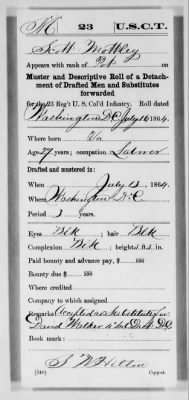 M 23 U.S.C.T.
Scott Mottley
Appears with rank of Pvt. on
Muster and Descriptive Roll of a Detach-
ment of Drafted Men and Substitutes
forwarded
for the 23 Reg't U. S. Col'd Infantry. Roll dated
Washington D.C. July 16, 1864.
Where born Va
Age 27 years; occupation Laborer
Drafted and mustered in:
When July 13, 1864.
Where Washington D.C.
Period 3 years.
Eyes Blk; hair Blk
Complexion Blk; height 5 ft. in.
Paid bounty and advance pay, $ 100
Bounty due $ 100
Where credited
Company to which assigned
Remarks: Accepted as Substitute for
David Walker Dist. D.C.
Book mark:
Copyist.
(340)